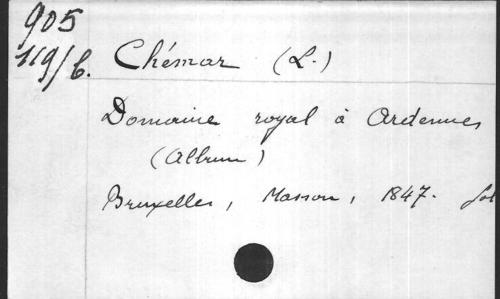 905
119/6.
Chémar (L.)
Domaine royal à Ardennes
(Album)
Bruxelles, Masson, 1847. fol